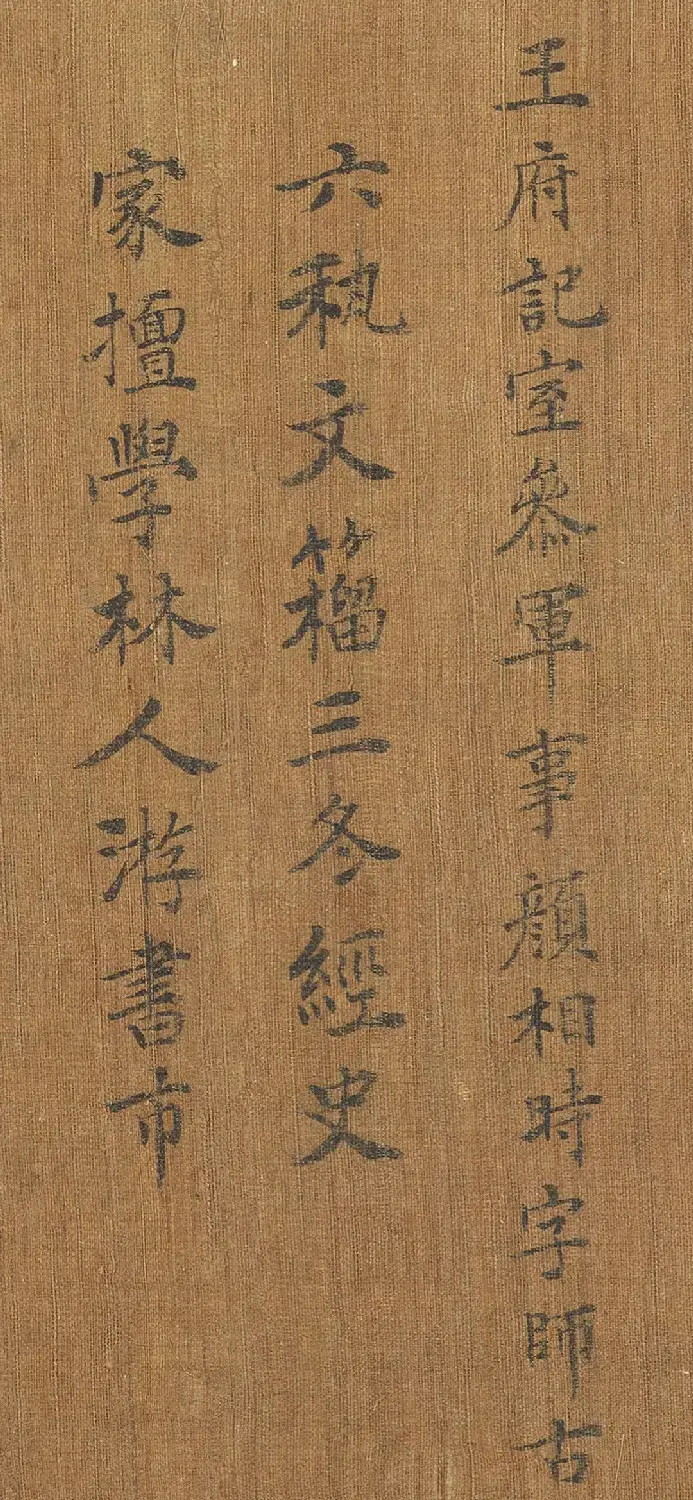 王府記室參軍事顏相時字師古
六秇文籕三冬經史
家擅學林人游書市